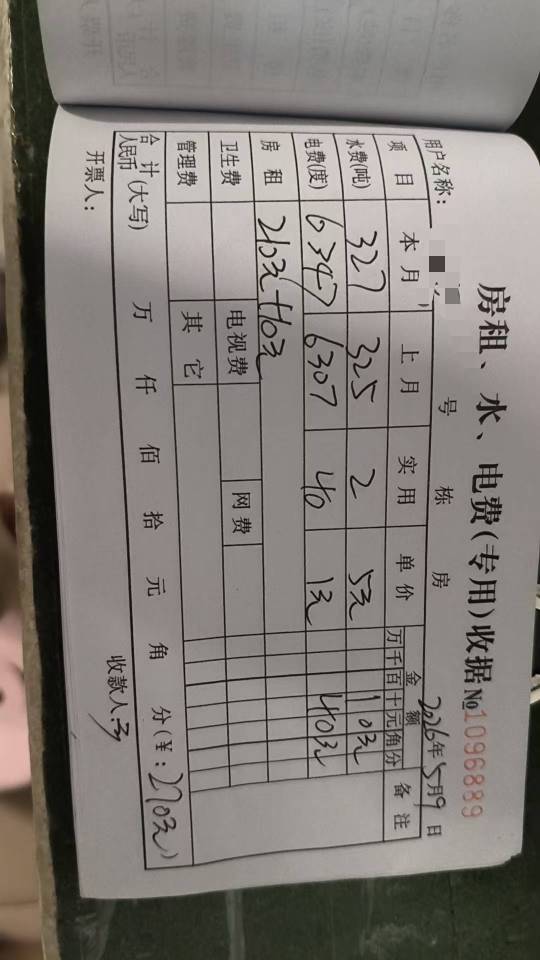 房租、水、电费(专用)收据 №1096889
用户名称： 号 栋 房 2026年5月9日
项目 本月 上月 实用 单价 金额 备注
万 千 百 十 元 角 分
水费(吨) 327 325 2 5元 10元
电费(度) 6347 6307 40 1元 40元
房租 210元+10元
卫生费 电视费 网费
管理费 其它
合计人民币(大写) 万 仟 佰 拾 元 角 分(¥：270元)
开票人： 收款人：